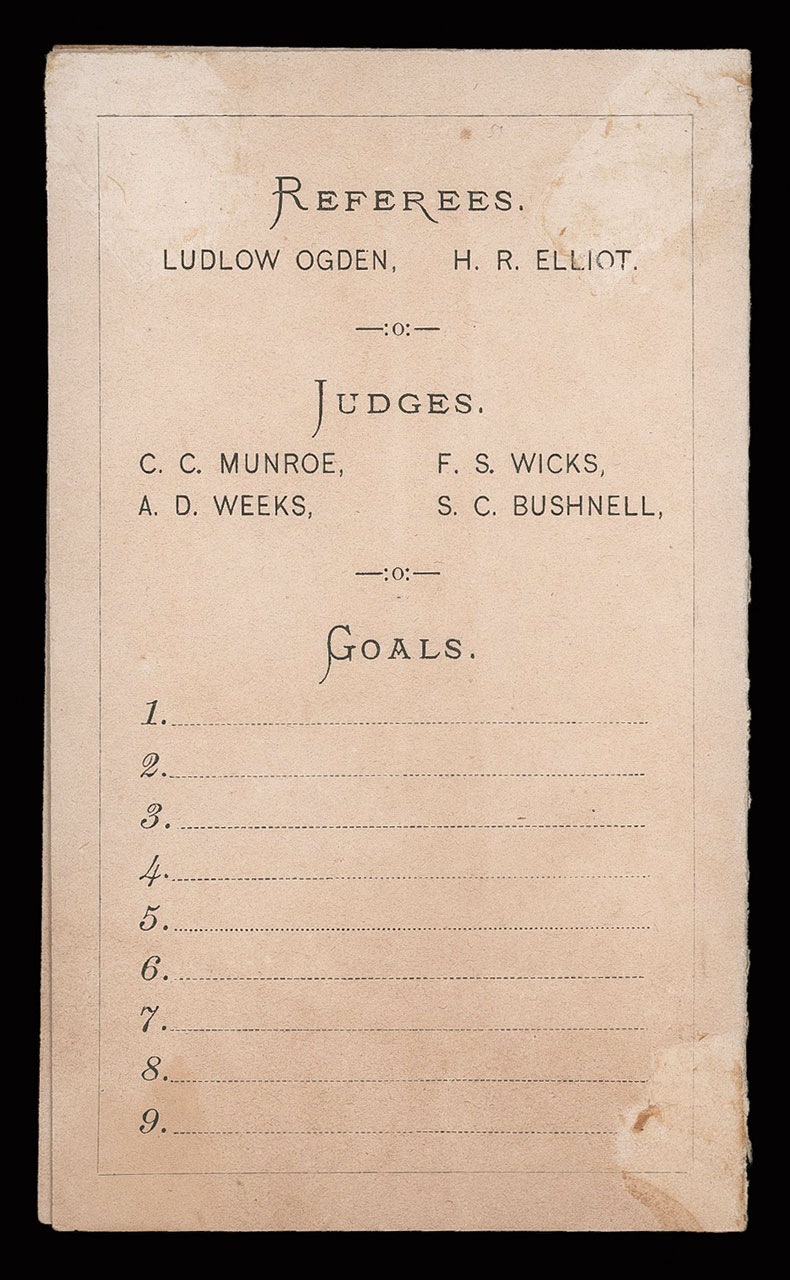 REFEREES.
LUDLOW OGDEN, H. R. ELLIOT.
—:o:—
JUDGES.
C. C. MUNROE, F. S. WICKS,
A. D. WEEKS, S. C. BUSHNELL,
—:o:—
GOALS.
1.
2.
3.
4.
5.
6.
7.
8.
9.